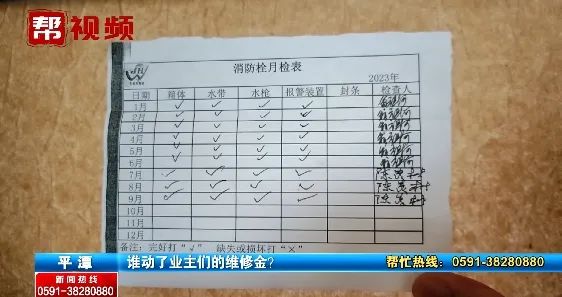 帮视频
消防栓月检表
2023年
日期 箱体 水带 水枪 报警装置 封条 检查人
1月 ✓ ✓ ✓ ✓
2月 ✓ ✓ ✓ ✓
3月 ✓ ✓ ✓ ✓
4月 ✓ ✓ ✓ ✓
5月 ✓ ✓ ✓ ✓
6月 ✓ ✓ ✓ ✓
7月 ✓ ✓ ✓ ✓
8月 ✓ ✓ ✓ ✓
9月 ✓ ✓ ✓ ✓
10月
11月
12月
备注：完好打“√” 缺失或损坏打“×”
平潭 谁动了业主们的维修金？ 帮忙热线：0591-38280880
新闻热线
0591-38280880